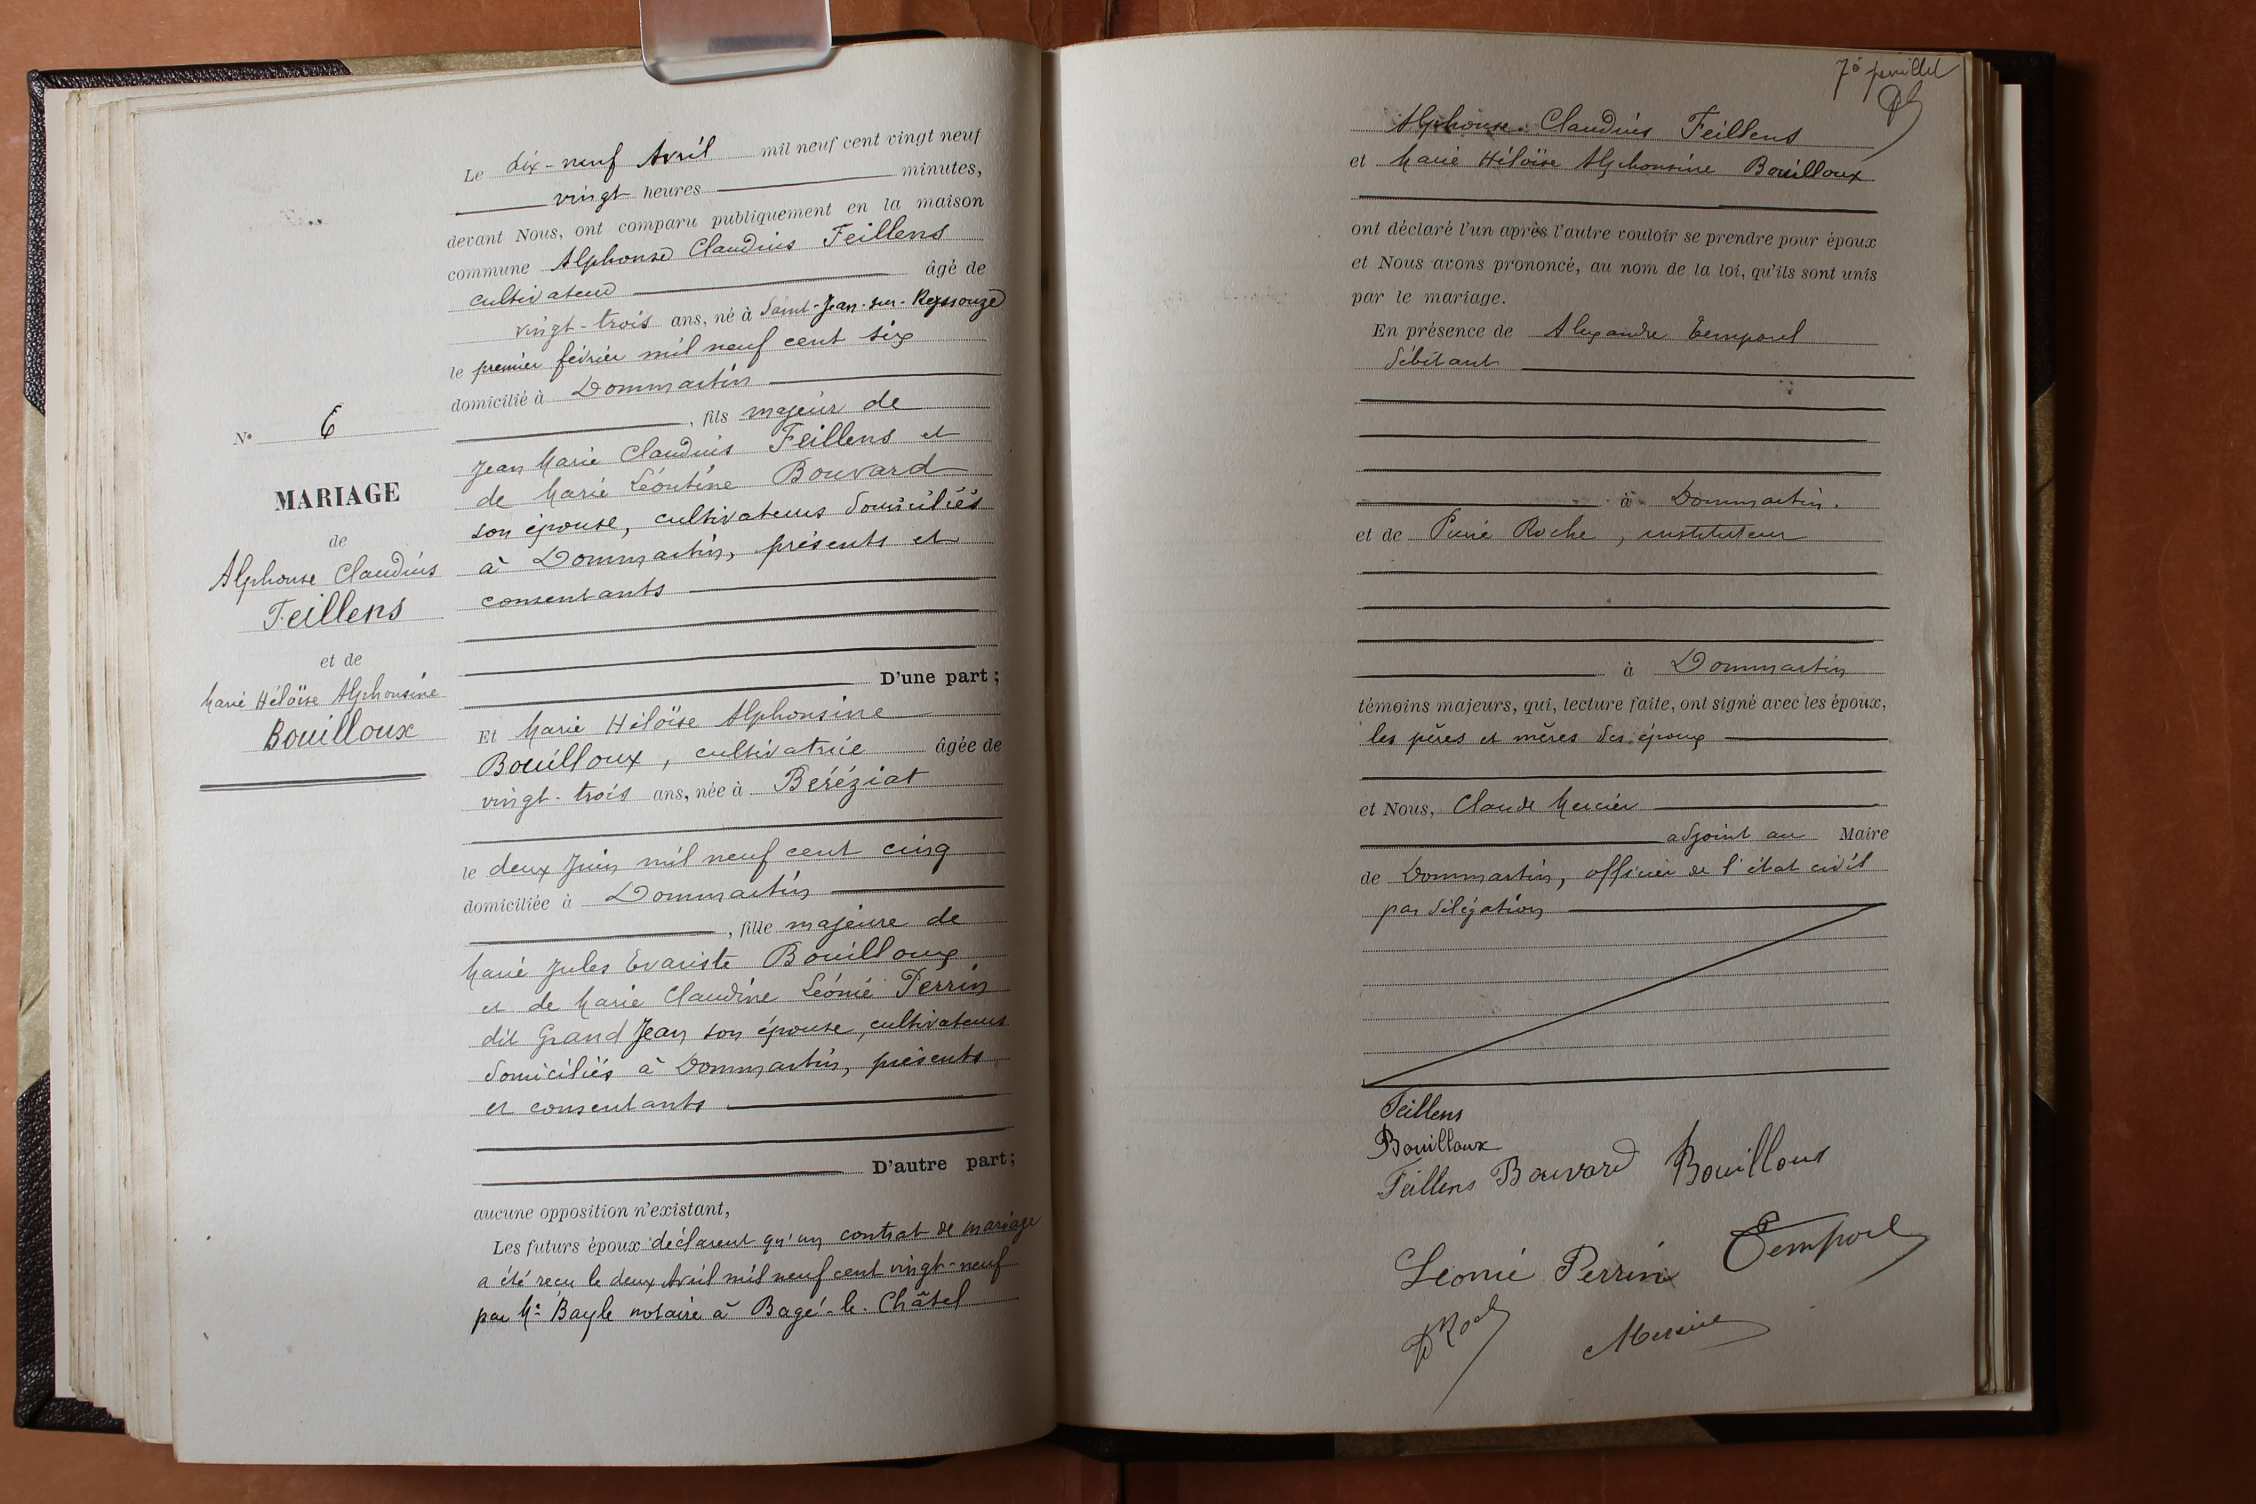 Le dix-neuf Avril mil neuf cent vingt neuf
vingt heures minutes,
devant Nous, ont comparu publiquement en la maison
commune Alphonse Claudius Feillens
cultivateur âgé de
vingt-trois ans, né à Saint-Jean-sur-Reyssouze
le premier février mil neuf cent six
domicilié à Dommartin
, fils majeur de
Jean Marie Claudius Feillens et
de Marie Léontine Bouvard
son épouse, cultivateurs domiciliés
à Dommartin, présents et
consentants
D'une part;
Et Marie Héloïse Alphonsine
Bouilloux, cultivatrice âgée de
vingt-trois ans, née à Béréziat
le deux Juin mil neuf cent cinq
domiciliée à Dommartin
, fille majeure de
Marie Jules Evariste Bouilloux
et de Marie Claudine Léonie Perrin
dit Grand Jean son épouse, cultivateurs
domiciliés à Dommartin, présents
et consentants
D'autre part;
aucune opposition n'existant,
Les futurs époux déclarent qu'un contrat de mariage
a été reçu le deux Avril mil neuf cent vingt-neuf
par Me Bayle notaire à Bagé-le-Châtel
No 6
MARIAGE
de
Alphonse Claudius
Feillens
et de
Marie Héloïse Alphonsine
Bouilloux
7e feuillet
Alphonse Claudius Feillens
et Marie Héloïse Alphonsine Bouilloux
ont déclaré l'un après l'autre vouloir se prendre pour époux
et Nous avons prononcé, au nom de la loi, qu'ils sont unis
par le mariage.
En présence de Alexandre Temporel
débitant
à Dommartin.
et de Pierre Roche, instituteur
à Dommartin
témoins majeurs, qui, lecture faite, ont signé avec les époux,
les pères et mères des époux
et Nous, Claude Mercier
adjoint au Maire
de Dommartin, officier de l'état civil
par délégation
Feillens
Bouilloux
Feillens Bouvard Bouilloux
Temporel
Léonie Perrin
Mercier